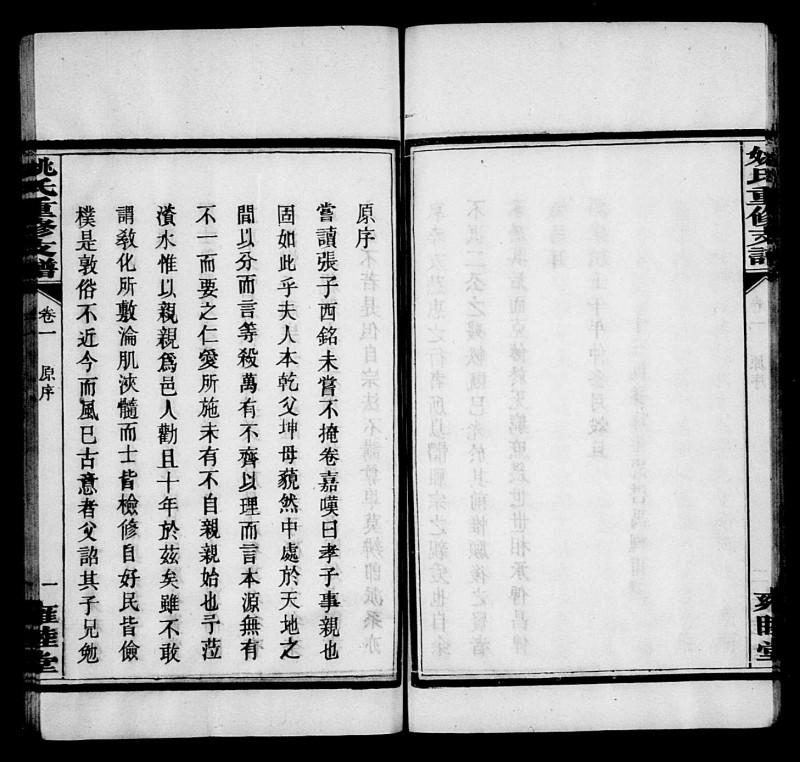 姚氏重修支譜
雍睦堂
原序
嘗讀張子西銘未嘗不掩卷嘉嘆曰孝子事親也
固如此乎夫人本乾父坤母藐然中處於天地之
間以分而言等殺萬有不齊以理而言本源無有
不一而要之仁愛所施未有不自親親始也予蒞
濱水惟以親親爲邑人勸且十年於茲矣雖不敢
謂敎化所敷淪肌浹髓而士皆檢修自好民皆儉
樸是敦俗不近今而風已古意者父詔其子兄勉
姚氏重修支譜
卷一
原序
一
雍睦堂